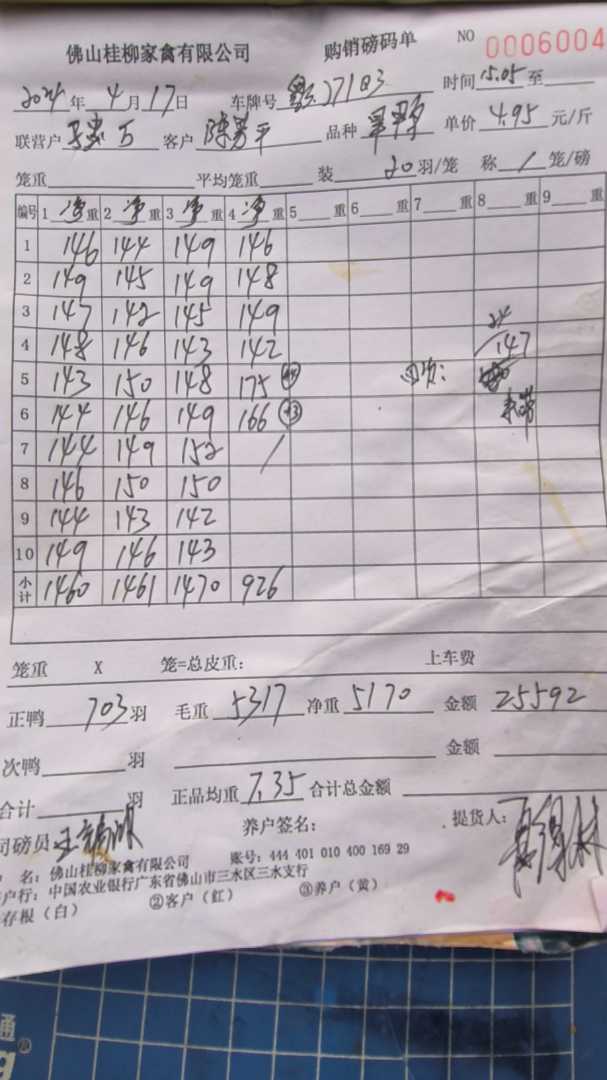 佛山桂柳家禽有限公司 购销磅码单 NO 0006004
2024年 4月 17日 车牌号 27183 时间 15.05 至
联营户 万 客户 陈 平 品种 单价 4.95 元/斤
笼重 平均笼重 装 20 羽/笼 称 1 笼/磅
编号 1 净 重 2 净 重 3 净 重 4 净 重 5 重 6 重 7 重 8 重 9 重
1 146 144 149 146
2 149 145 149 148
3 147 142 145 149 24
4 148 146 143 142 147
5 143 150 148 175 +15
6 144 146 149 166 +3
7 144 149 152 /
8 146 150 150
9 144 143 142
10 149 146 143
小计 1460 1461 1470 926
笼重 X 笼=总皮重: 上车费
正鸭 703 羽 毛重 5317 净重 5170 金额 25592
次鸭 羽 金额
合计 羽 正品均重 7.35 合计总金额
司磅员 王 养户签名: 提货人:
名: 佛山桂柳家禽有限公司 账号: 444 401 010 400 169 29
户行: 中国农业银行广东省佛山市三水区三水支行
存根(白) ②客户(红) ③养户(黄)
通